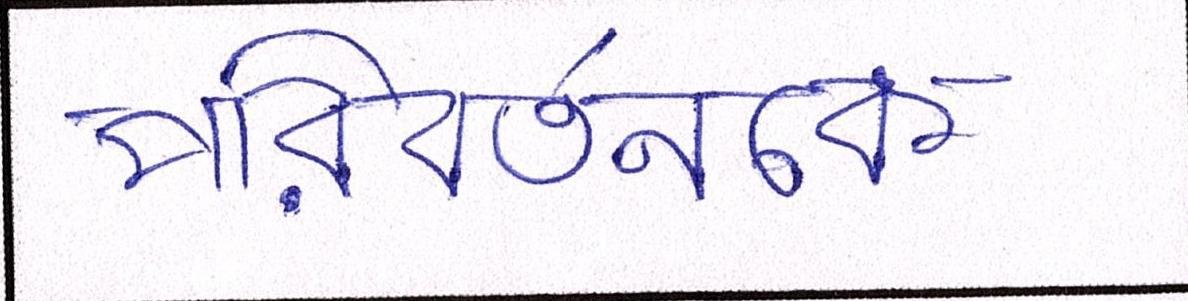 পরিবর্তনকে